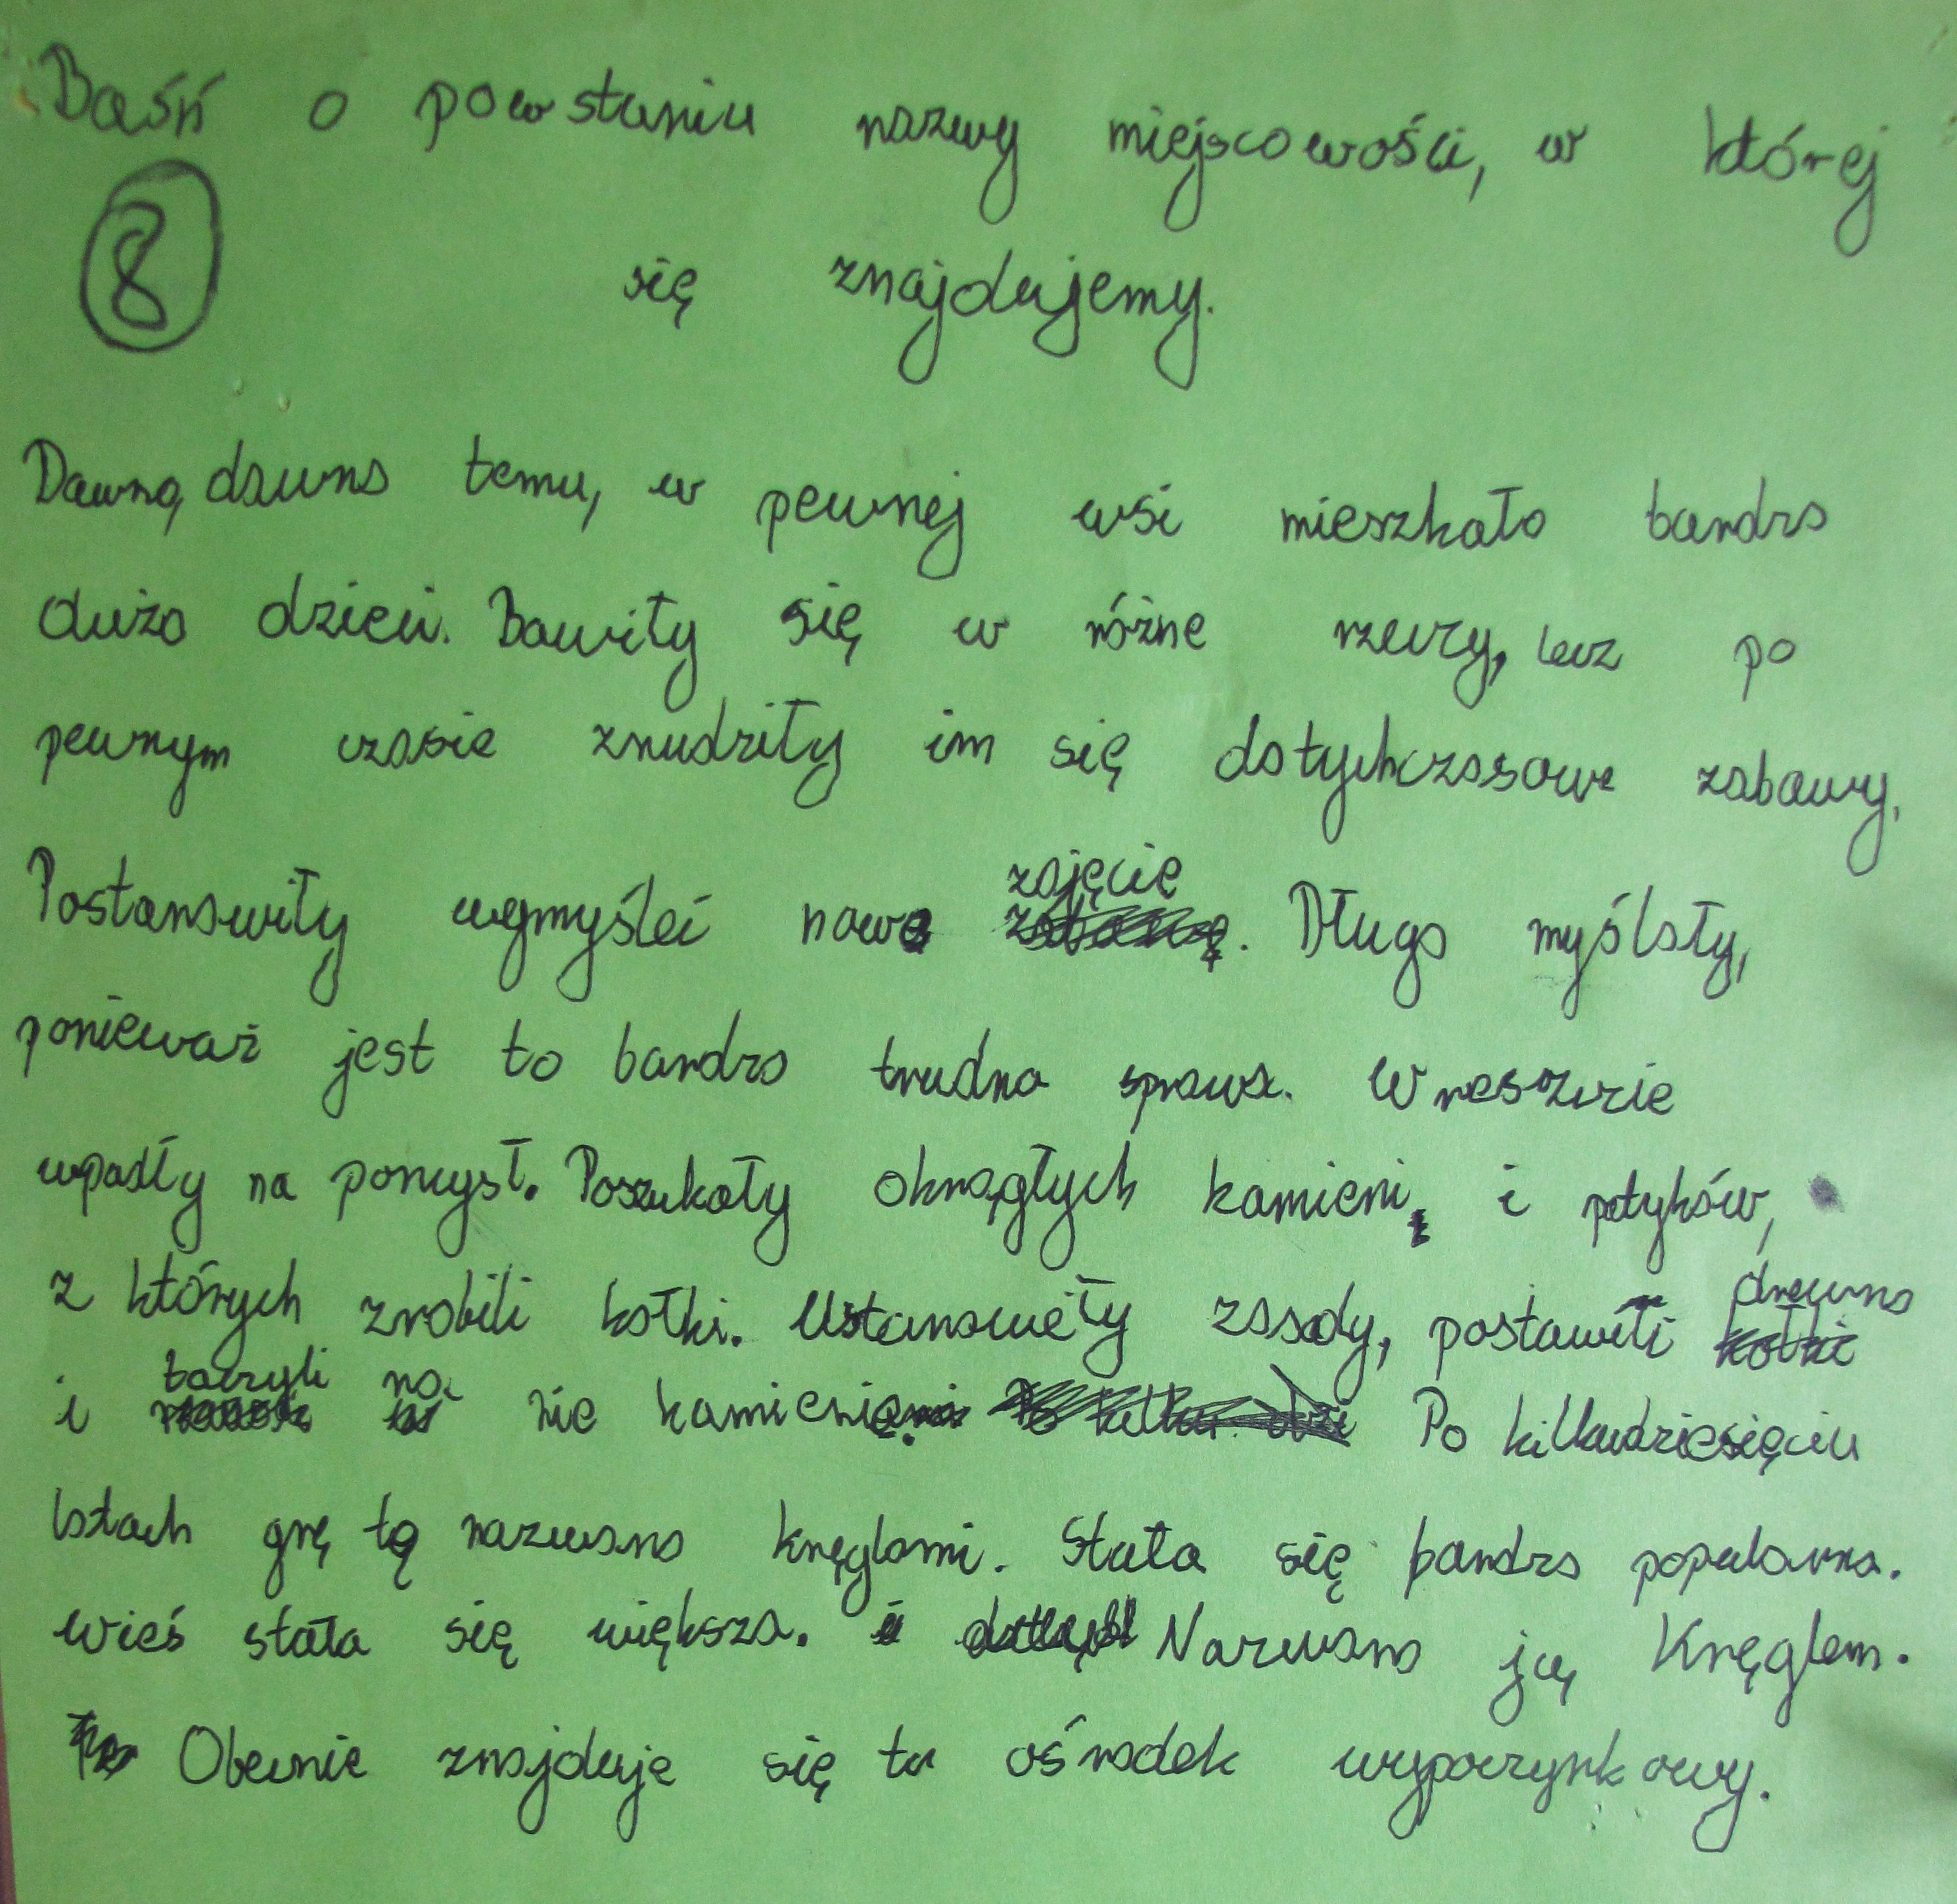 Baśń o powstaniu nazwy miejscowości, w której
8
się znajdujemy.
Dawno, dawno temu, w pewnej wsi mieszkało bardzo
dużo dzieci. Bawiły się w różne rzeczy, lecz po
pewnym czasie znudziły im się dotychczasowe zabawy.
Postanowiły wymyśleć nowe zajęcie. Długo myślały,
ponieważ jest to bardzo trudna sprawa. Wreszcie
wpadły na pomysł. Poszukały okrągłych kamieni i patyków,
z których zrobili kołki. Ustanowiły zasady, postawili drewno
i toczyli na nie kamienie. Po kilkudziesięciu
latach grę tę nazwano kręglami. Stała się bardzo popularna.
Wieś stała się większa. Nazwano ją Kręglem.
Obecnie znajduje się tu ośrodek wypoczynkowy.